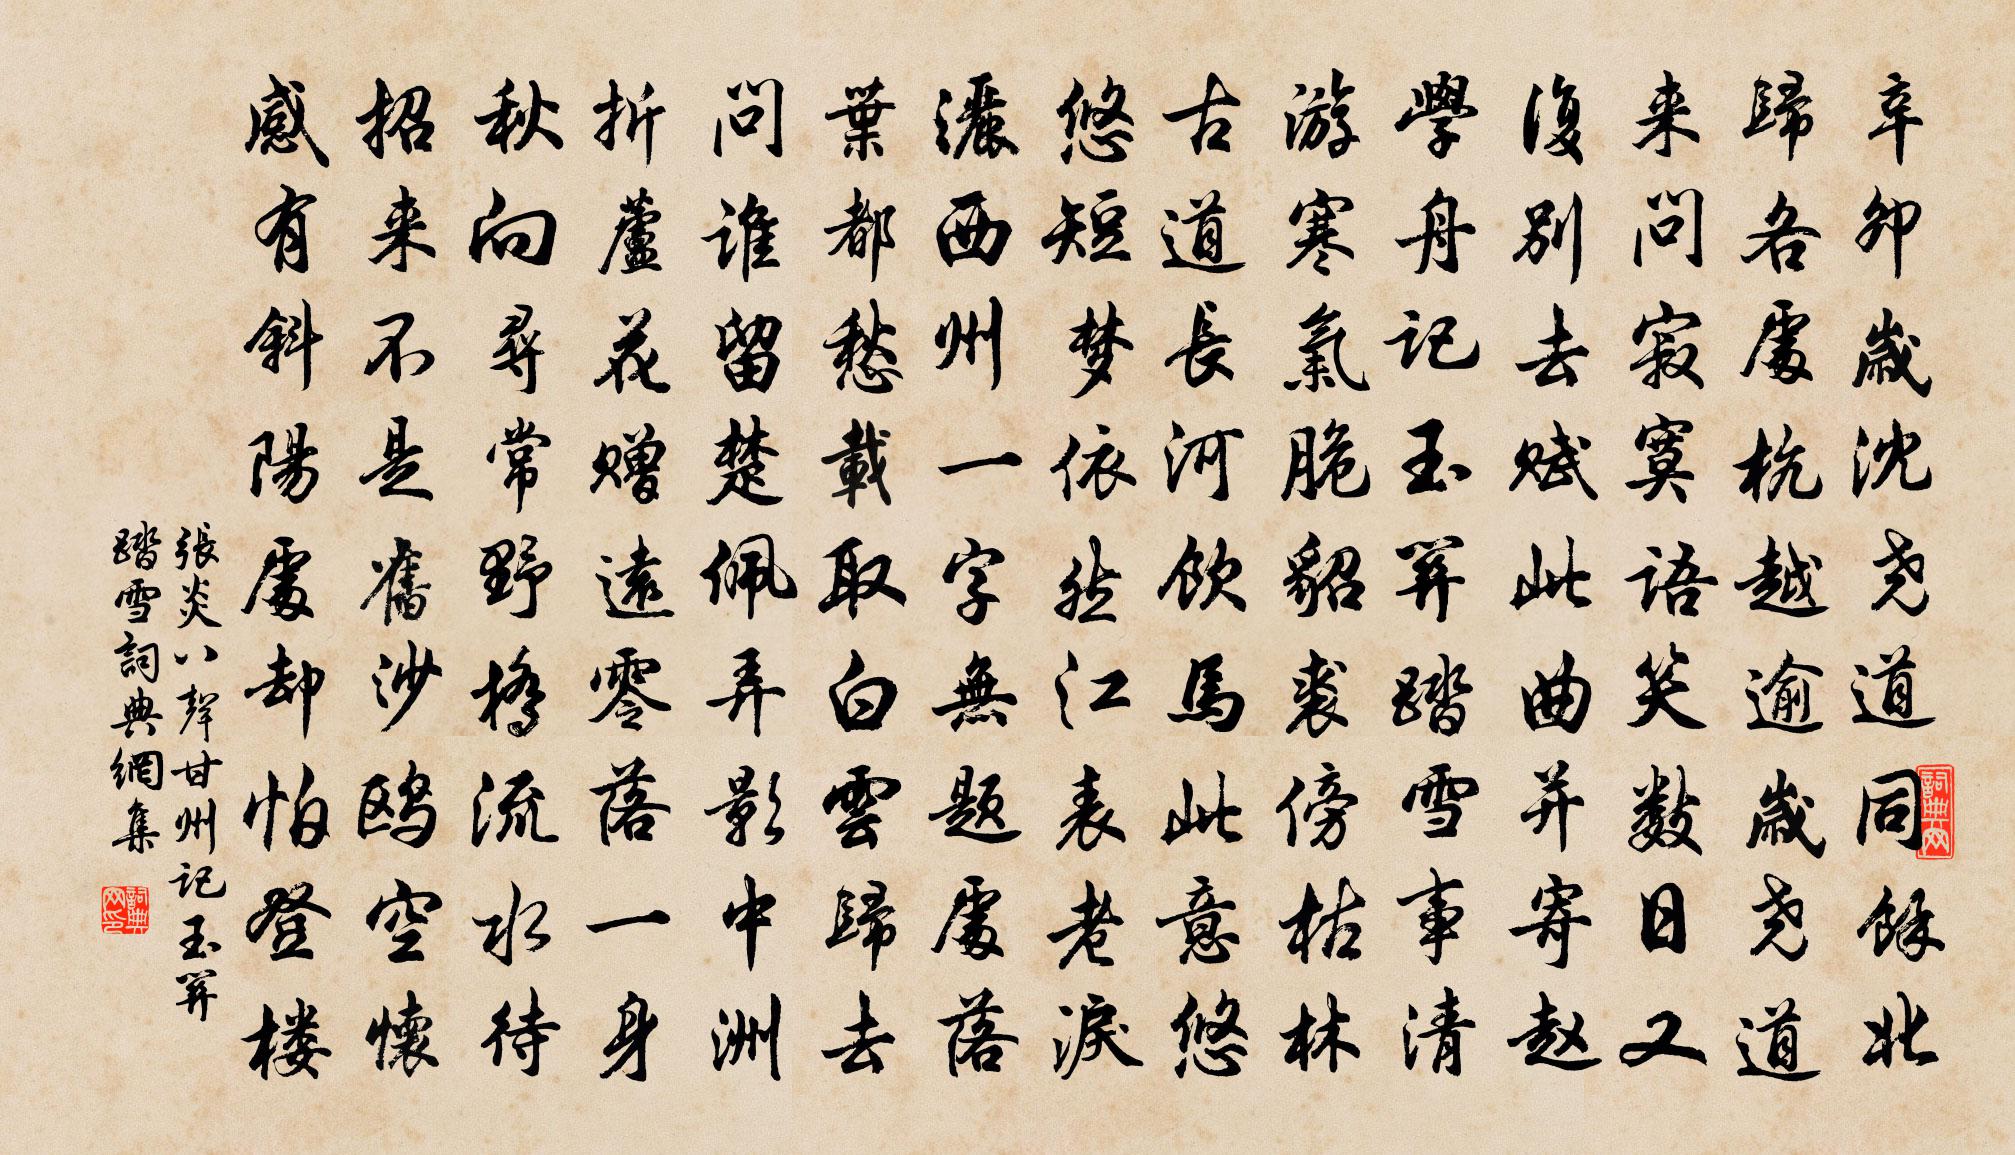 辛卯歳沈尧道同餘北
歸各處杭越逾歳尧道
来问寂寞语笑数日又
復别去赋此曲并寄赵
學舟记玉關踏雪事清
游寒氣脆貂裘傍枯林
古道長河饮馬此意悠
悠短梦依然江表老淚
灑西州一字無题處落
葉都愁載取白雲歸去
问谁留楚佩弄影中洲
折蘆花赠遠零落一身
秋向尋常野橋流水待
招来不是舊沙鸥空懷
感有斜陽處却怕登楼
張炎八聲甘州记玉關
踏雪詞典網集
詞典网
詞典网印